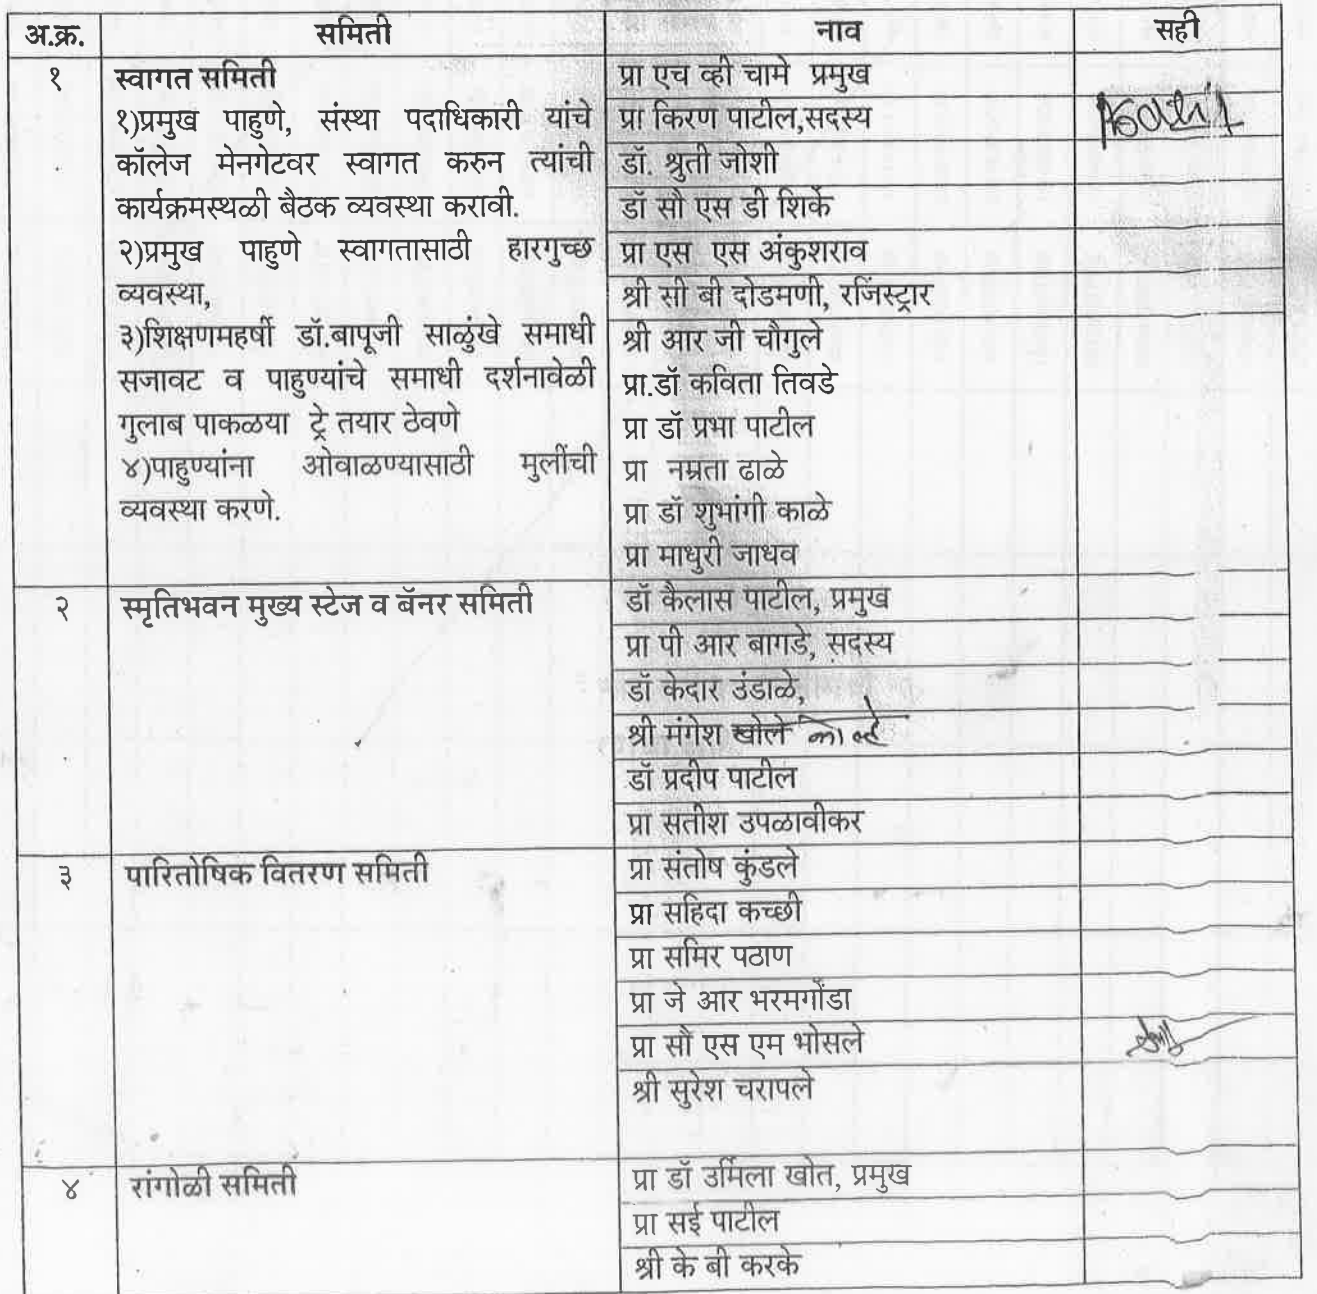 अ.क्र. समिती नाव सही
१ स्वागत समिती
१)प्रमुख पाहुणे, संस्था पदाधिकारी यांचे
कॉलेज मेनगेटवर स्वागत करुन त्यांची
कार्यक्रमस्थळी बैठक व्यवस्था करावी.
२)प्रमुख पाहुणे स्वागतासाठी हारगुच्छ
व्यवस्था,
३)शिक्षणमहर्षी डॉ.बापूजी साळुंखे समाधी
सजावट व पाहुण्यांचे समाधी दर्शनावेळी
गुलाब पाकळया ट्रे तयार ठेवणे
४)पाहुण्यांना ओवाळण्यासाठी मुलींची
व्यवस्था करणे.
प्रा एच व्ही चामे प्रमुख
प्रा किरण पाटील,सदस्य
डॉ. श्रुती जोशी
डॉ सौ एस डी शिर्के
प्रा एस एस अंकुशराव
श्री सी बी दोडमणी, रजिस्ट्रार
श्री आर जी चौगुले
प्रा.डॉ कविता तिवडे
प्रा डॉ प्रभा पाटील
प्रा नम्रता ढाळे
प्रा डॉ शुभांगी काळे
प्रा माधुरी जाधव
२ स्मृतिभवन मुख्य स्टेज व बॅनर समिती
डॉ कैलास पाटील, प्रमुख
प्रा पी आर बागडे, सदस्य
डॉ केदार उंडाळे,
श्री मंगेश खोले
डॉ प्रदीप पाटील
प्रा सतीश उपळावीकर
३ पारितोषिक वितरण समिती
प्रा संतोष कुंडले
प्रा सहिदा कच्छी
प्रा समिर पठाण
प्रा जे आर भरमगोंडा
प्रा सौ एस एम भोसले
श्री सुरेश चरापले
४ रांगोळी समिती
प्रा डॉ उर्मिला खोत, प्रमुख
प्रा सई पाटील
श्री के बी करके